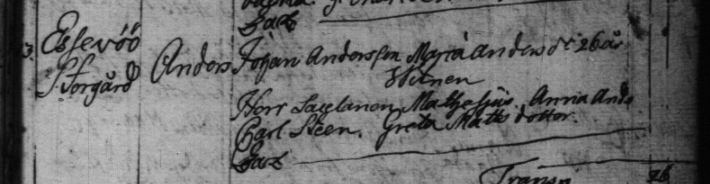 Barb
3. Essevöö
Storgård
Anders Johan Andersson Maria Anders dr 26 år
Witnen
Herr Sacelanen Mathesius. Anna Ands
Carl Steen. Greta Matts dotter.
Barb
Transp 26